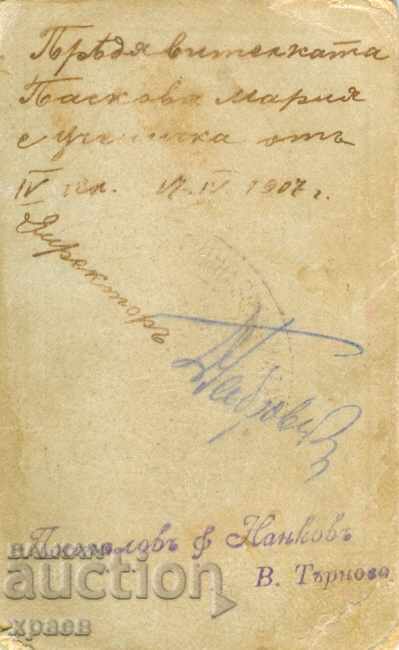 Прѣдявителката
Паскова Мария
е ученичка отъ
IV кл. 17.IV 1907 г.
Директоръ
& Нанковъ
В. Търново
БАЛКАН
auction
храев